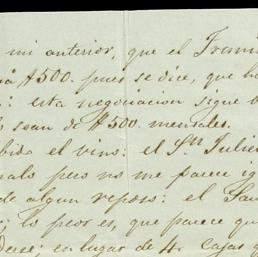 mi anterior, que el Trami
$500. pues se dice, que ha
: esta negociacion sigue
sean de $500. mensales.
bido el vino: el Sn. Julie
malo pero no me parece ig
de algun reposo: el Sau
; lo peor es, que parece qu
Dece; en lugar de 4 Cajas q